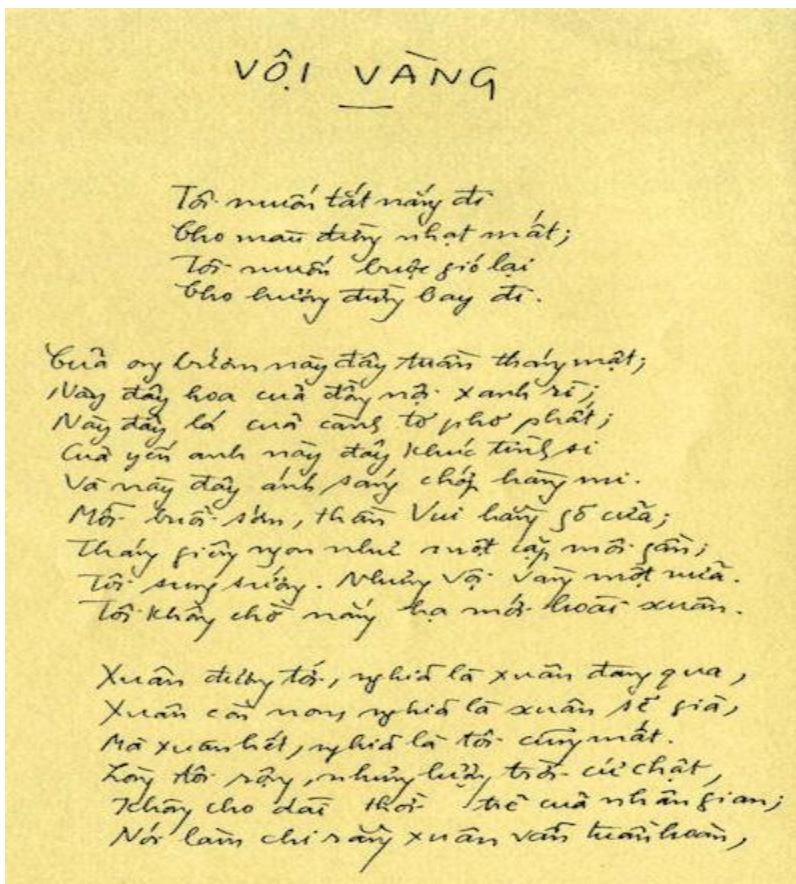 VỘI VÀNG
Tôi muốn tắt nắng đi
Cho màu đừng nhạt mất;
Tôi muốn buộc gió lại
Cho hương đừng bay đi.
Của ong bướm này đây tuần tháng mật;
Này đây hoa của đồng nội xanh rì;
Này đây lá của cành tơ phơ phất;
Của yến anh này đây khúc tình si
Và này đây ánh sáng chớp hàng mi.
Mỗi buổi sớm, thần Vui hằng gõ cửa;
Tháng giêng ngon như một cặp môi gần;
Tôi sung sướng. Nhưng vội vàng một nửa.
Tôi không chờ nắng hạ mới hoài xuân.
Xuân đương tới, nghĩa là xuân đang qua,
Xuân còn non, nghĩa là xuân sẽ già,
Mà xuân hết, nghĩa là tôi cũng mất.
Lòng tôi rộng, nhưng lượng trời cứ chật,
Không cho dài thời trẻ của nhân gian;
Nói làm chi rằng xuân vẫn tuần hoàn,